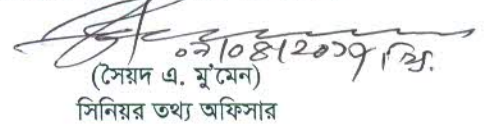 ০২/০৪/২০১৭ খ্রি.
(সৈয়দ এ. মু'মেন)
সিনিয়র তথ্য অফিসার